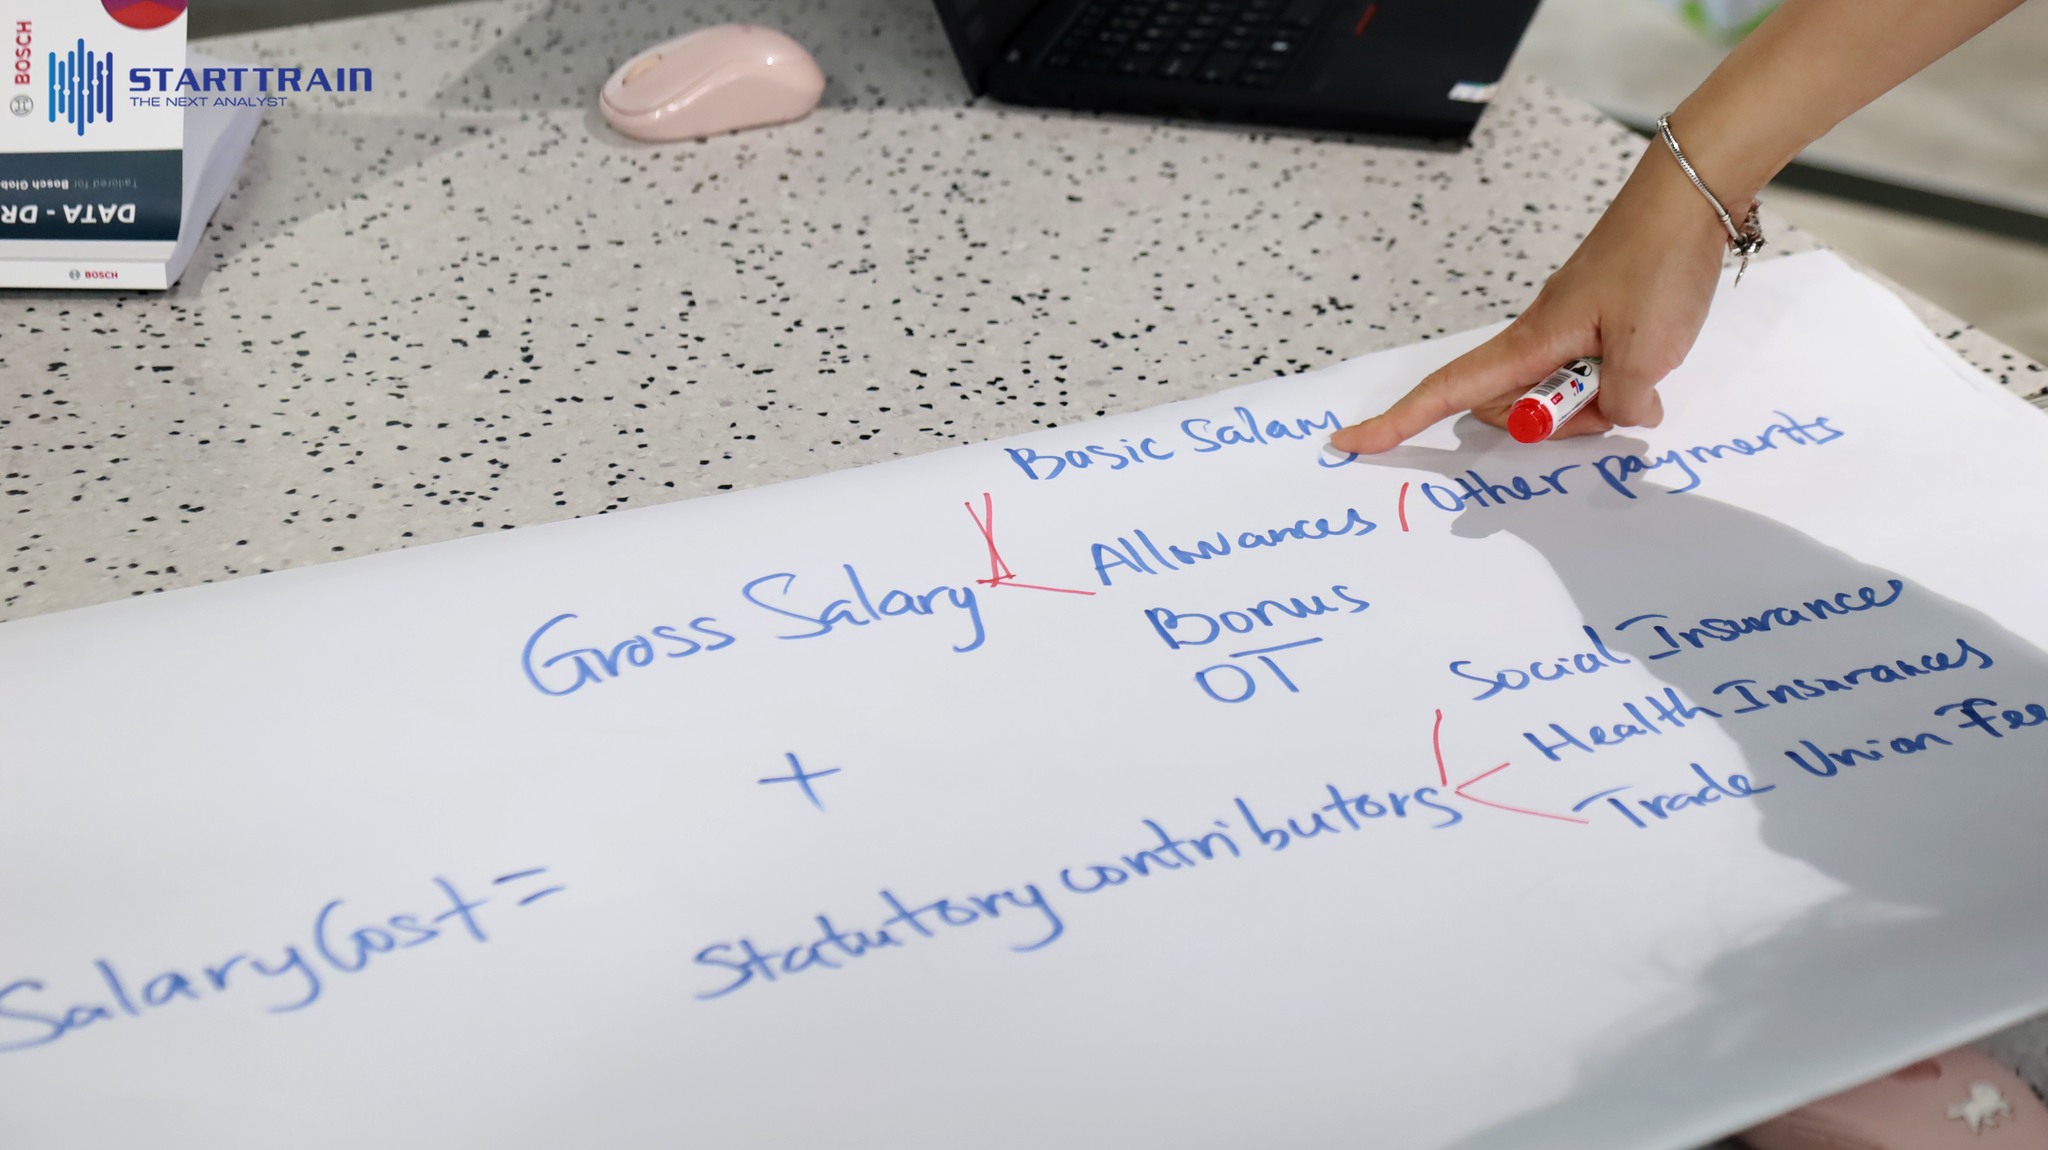 BOSCH
STARTTRAIN
THE NEXT ANALYST
Tailored for Bosch Glob
DATA - DR
BOSCH
Basic Salary
Allowances / Other payments
Gross Salary
Bonus
OT
+
Social Insurances
Health Insurances
Trade Union Fee
Salary Cost =
Statutory contributors